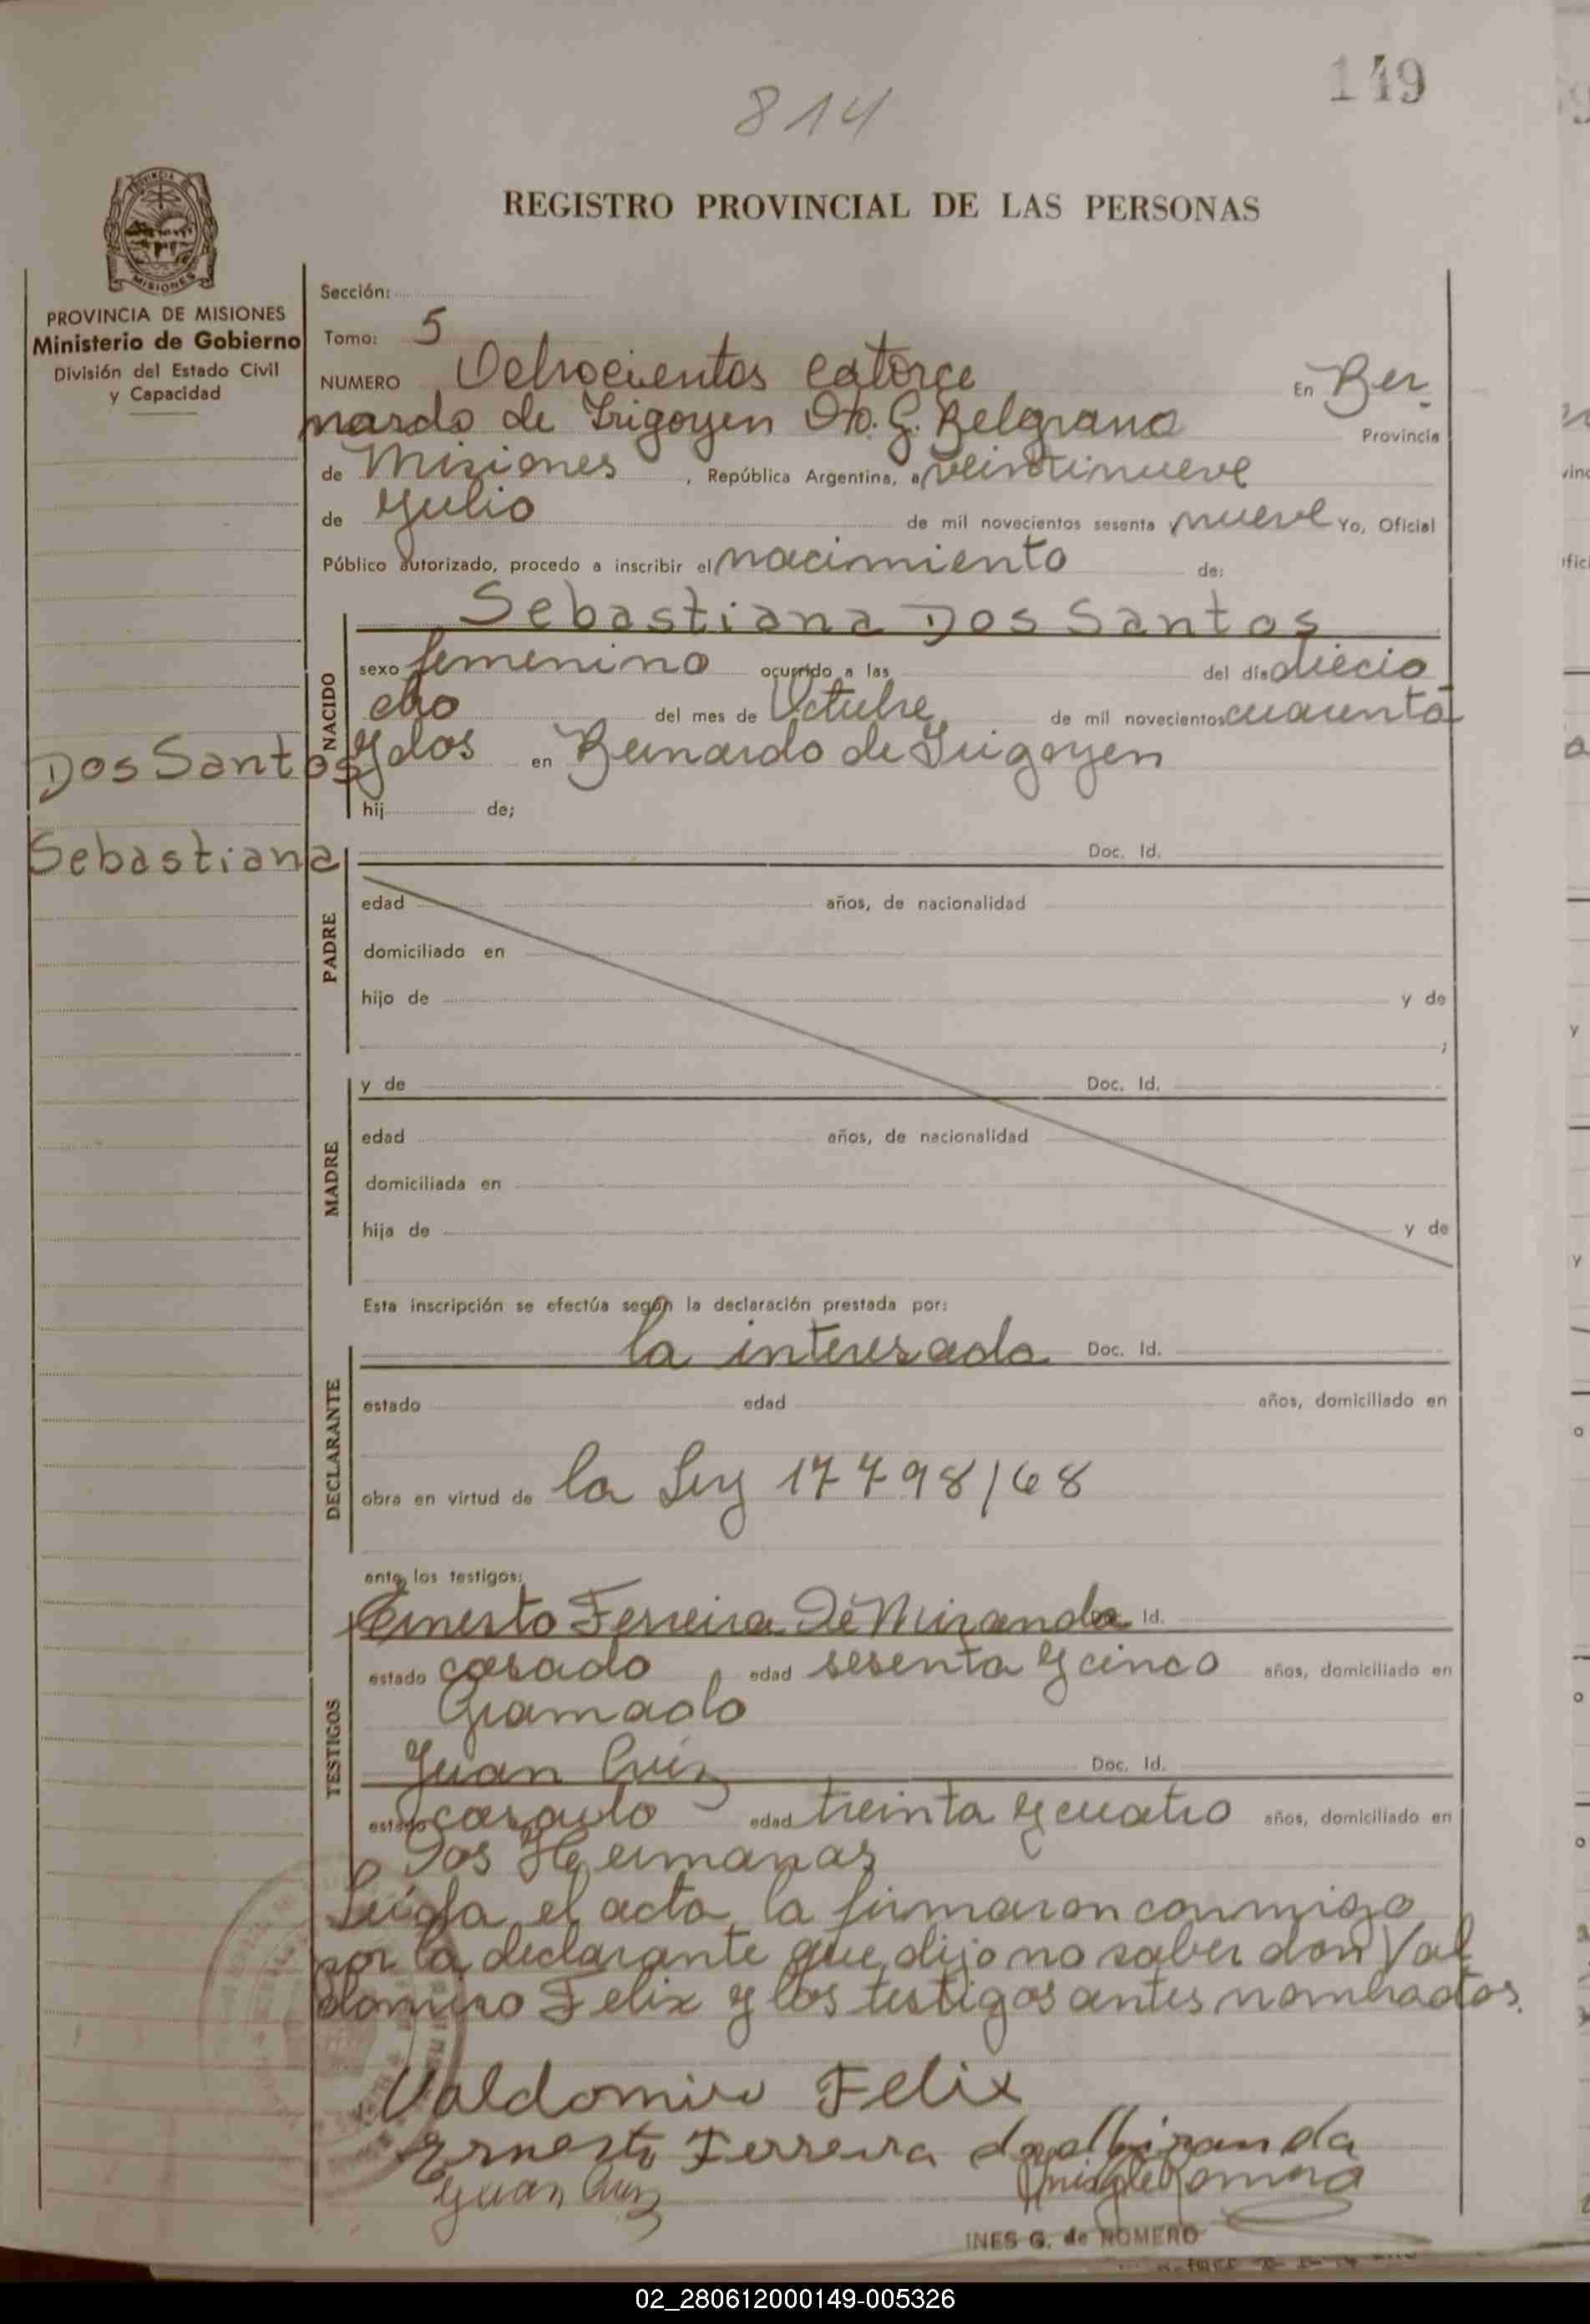 149
814
REGISTRO PROVINCIAL DE LAS PERSONAS
PROVINCIA DE MISIONES
Ministerio de Gobierno
División del Estado Civil
y Capacidad
Sección:
Tomo: 5
NUMERO Ochocientos catorce En Ber
nardo de Irigoyen Dto. G. Belgrano Provincia
de Misiones, República Argentina, a veintinueve
de Julio de mil novecientos sesenta nueve Yo, Oficial
Público autorizado, procedo a inscribir el nacimiento de:
Sebastiana Dos Santos
NACIDO
sexo femenino ocurrido a las del día diecio
cho del mes de Octubre de mil novecientos cuarenta
y dos en Bernardo de Irigoyen
Dos Santos
hij de;
Sebastiana
Doc. Id.
PADRE
edad años, de nacionalidad
domiciliado en
hijo de y de
;
MADRE
y de Doc. Id.
edad años, de nacionalidad
domiciliada en
hija de y de
Esta inscripción se efectúa según la declaración prestada por:
la interesada Doc. Id.
DECLARANTE
estado edad años, domiciliado en
obra en virtud de la Ley 17798/68
ante los testigos:
Ernesto Ferreira De Miranda Id.
TESTIGOS
estado casado edad sesenta y cinco años, domiciliado en
Gramado
Juan Cruz Doc. Id.
estado casado edad treinta y cuatro años, domiciliado en
Dos Hermanas
Leída el acta la firmaron conmigo
por la declarante que dijo no saber don Val
domiro Felix y los testigos antes nombrados.
Valdomiro Felix
Ernesto Ferreira de Miranda
Juan Cruz
INES G. de ROMERO
02_280612000149-005326